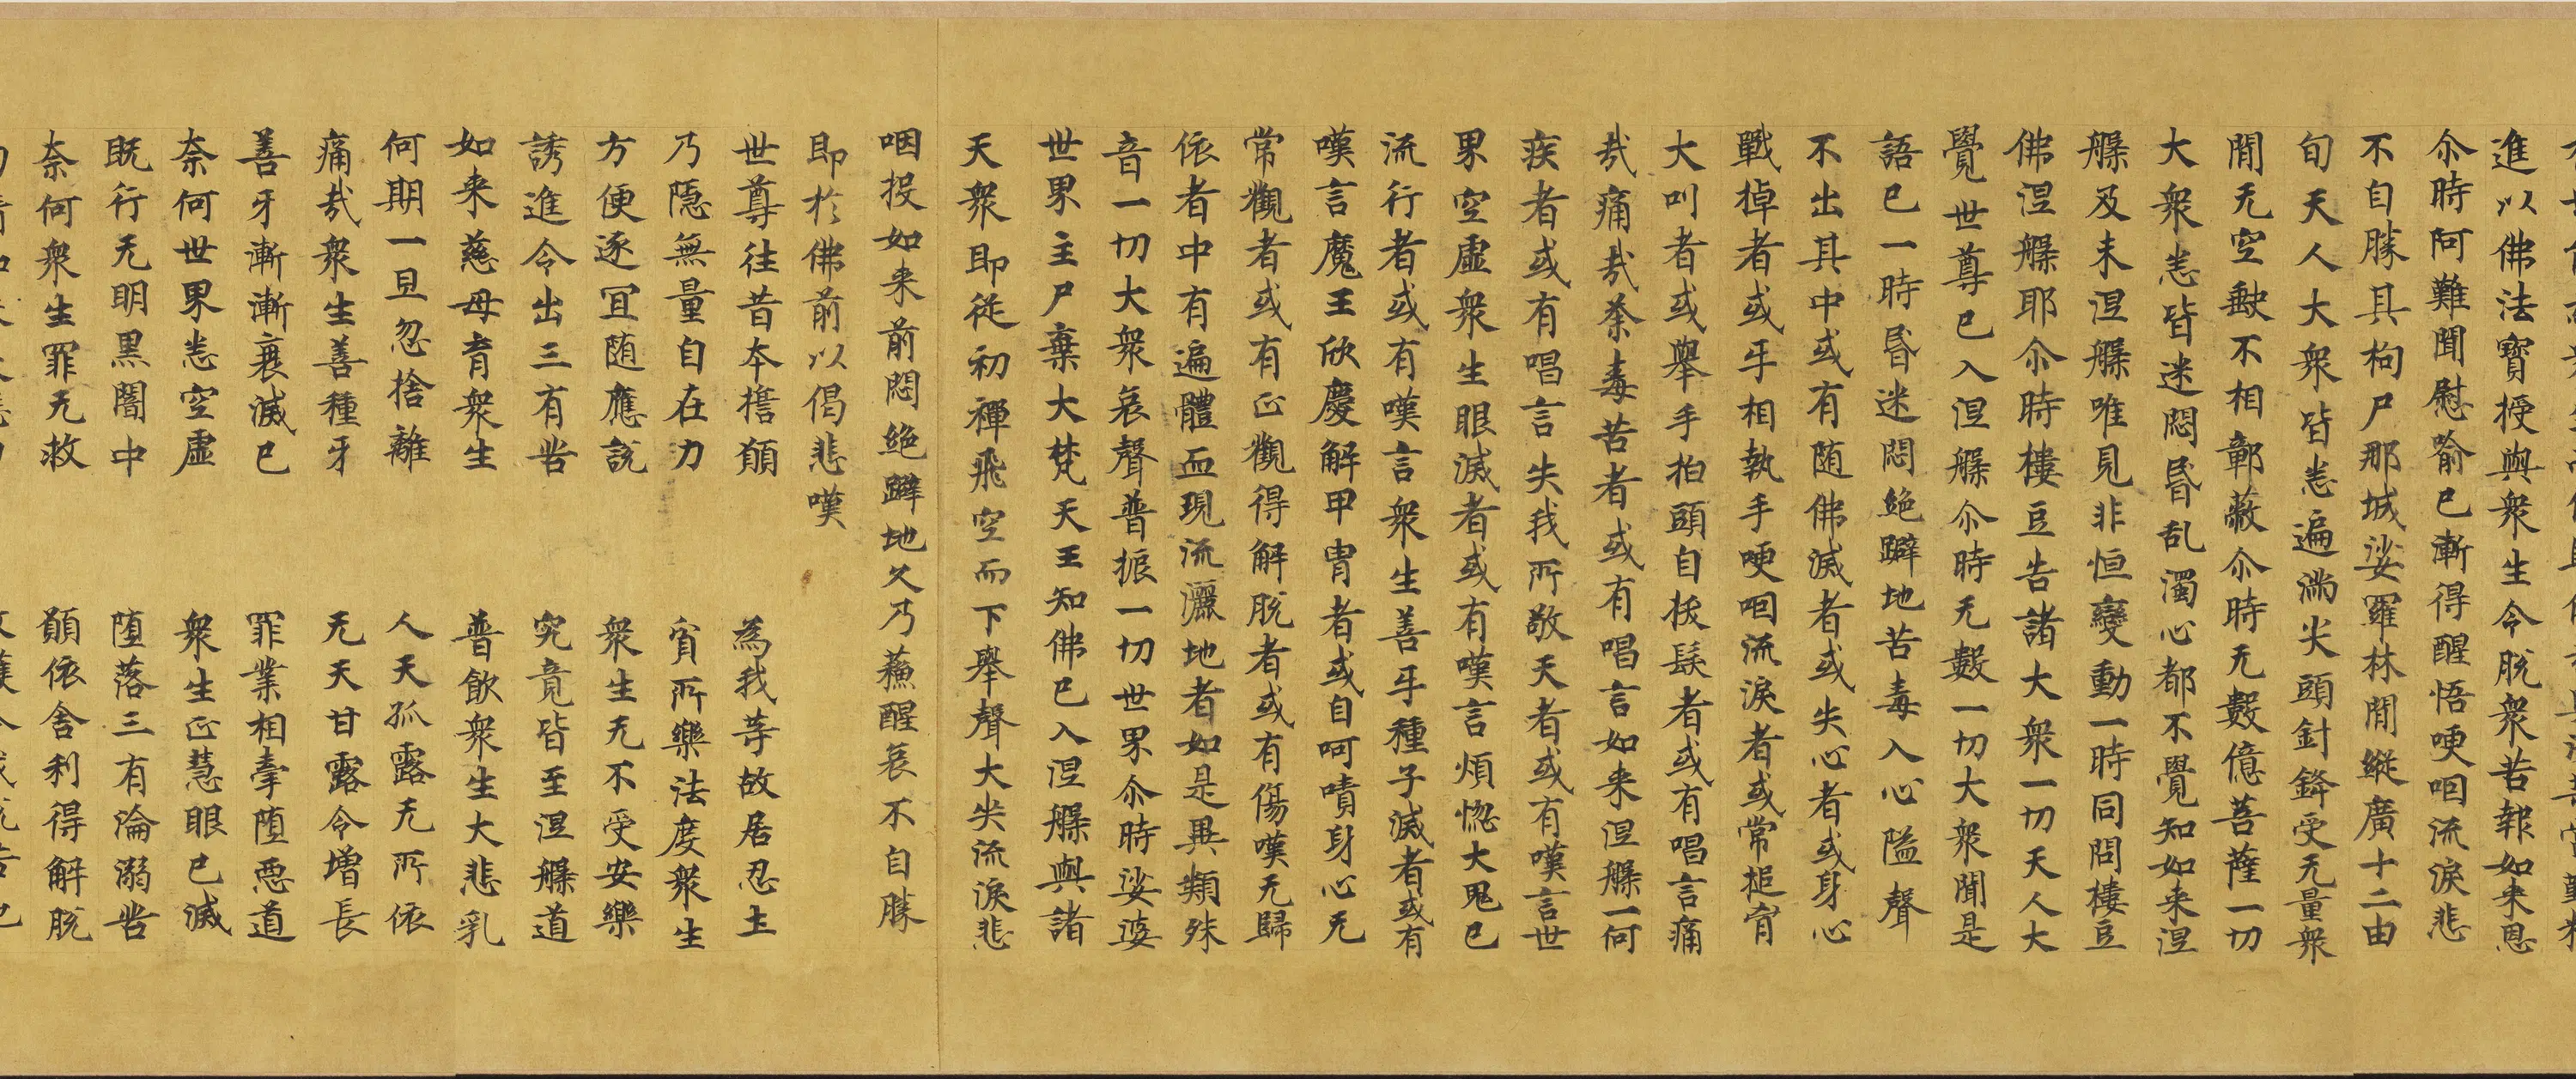 進以佛法寶授與衆生令脱衆苦報如来恩
尒時阿難聞慰喻已漸得醒悟哽咽流淚悲
不自勝其枸尸那城娑羅林間縱廣十二由
旬天人大衆皆悉遍滿尖頭針鋒受无量衆
間无空缺不相鄣蔽尒時无數億菩薩一切
大衆悉皆迷悶昬乱濁心都不覺知如来涅
槃及未涅槃唯見非恒變動一時同問樓豆
佛涅槃耶尒時樓豆告諸大衆一切天人大
覺世尊已入涅槃尒時无數一切大衆聞是
語已一時昬迷悶絶躃地苦毒入心隘聲
不出其中或有随佛滅者或失心者或身心
戰掉者或㸦相執手哽咽流淚者或常搥胷
大叫者或舉手拍頭自拔髮者或有唱言痛
㢤痛㢤荼毒苦者或有唱言如来涅槃一何
疾者或有唱言失我所敬天者或有嘆言世
界空虚衆生眼滅者或有嘆言煩惚大鬼已
流行者或有嘆言衆生善牙種子滅者或有
嘆言魔王欣慶解甲冑者或自呵嘖身心无
常觀者或有正觀得解脱者或有傷嘆无歸
依者中有遍體血現流灑地者如是異類殊
音一切大衆哀聲普振一切世界尒時娑婆
世界主尸棄大梵天王知佛已入涅槃與諸
天衆即從初禪飛空而下舉聲大哭流淚悲
咽投如来前悶絶躃地久乃蘓醒哀不自勝
即於佛前以偈悲嘆
世尊往昔本擔願 為我䓁故居忍土
乃隱無量自在力 貧所樂法度衆生
方便逐冝随應説 衆生无不受安樂
誘進令出三有苦 究竟皆至涅槃道
如来慈母育衆生 普飲衆生大悲乳
何期一旦忽捨離 人天孤露无所依
痛㢤衆生善種牙 无天甘露令增長
善牙漸漸衰滅已 罪業相牽堕惡道
奈何世界悉空虚 衆生正慧眼已滅
既行无明黑闇中 堕落三有淪溺苦
奈何衆生罪无救 願依舍利得解脱